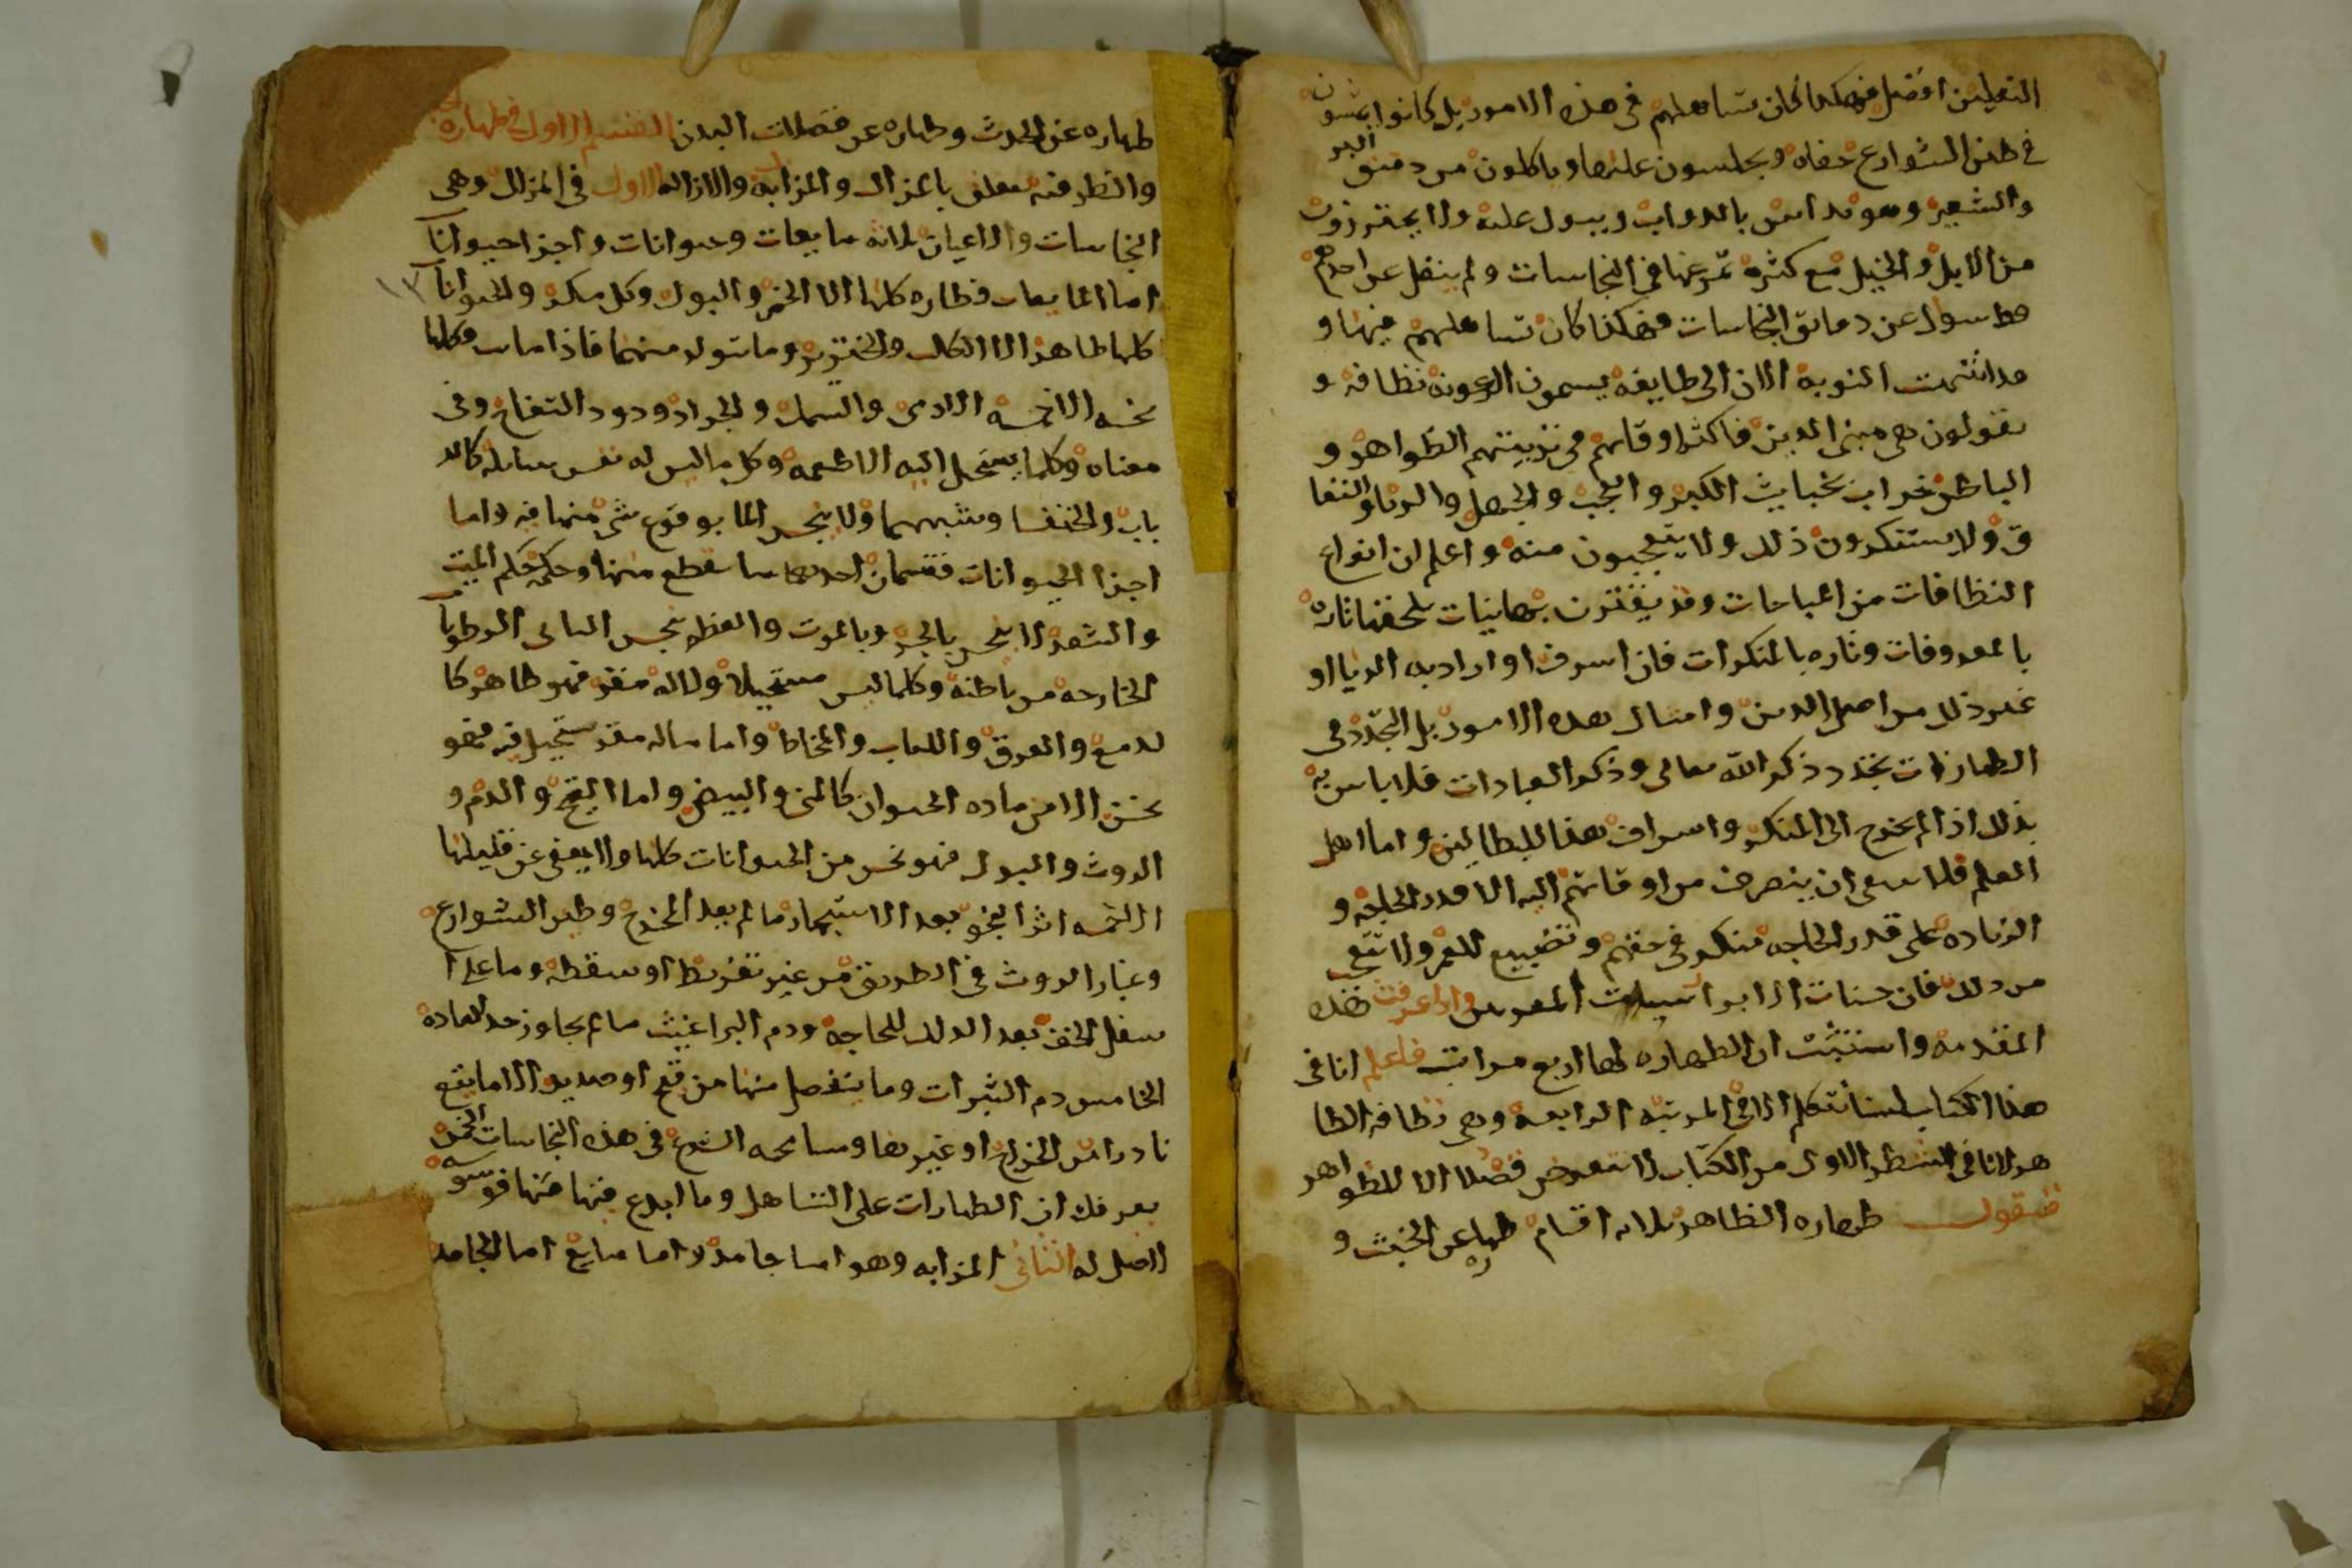 النعلين افضل فهكذا كان تساهلهم في هذه الامور بل كانوا يمشون
في طين الشوارع حفاه ويجلسون عليها وياكلون من دقيق البر
والشعير وهو يداس بالدواب ويبول عليه ولا يحترزون
من الابل والخيل مع كثره تمرغها في النجاسات ولم ينقل عن احدهم
قط سوال عن دقائق النجاسات فهكذا كان تساهلهم فيها و
قد انتهت النوبه الان الى طايفه يسمون الرعونه نظافه و
يقولون هي مبنى الدين فاكثر اوقاتهم في تزيينهم الظواهر و
الباطن خراب بخبايث الكبر والعجب والجهل والريا والنفا
ق ولا يستنكرون ذلك ولا يتعجبون منه واعلم ان انواع
النظافات من المباحات وقد يقترن بها نيات تلحقها تاره
بالمعروفات وتاره بالمنكرات فان اسرف او اراد به الريا او
غير ذلك من اصل الدين وامثال هذه الامور بل التجدد في
الطهارات تجدد ذكر الله تعالى وذكر العبادات فلا باس به
بذلك اذا لم يخرج الى المنكر واسراف هذا للبطالين واما اهل
العلم فلا ينبغي ان يتصرف من اوقاتهم اليه الا قدر الحاجه و
الزياده على قدر الحاجه منكر في حقهم وتضييع للعمر ولا تتعجب
من ذلك فان حسنات الابرار سيئات المقربين واذا عرفت هذه
المقدمه واستثبت ان الطهاره لها اربع مراتب فاعلم انا في
هذا الكتاب لسنا نتكلم الا في المرتبه الرابعه وهي نظافه الظا
هر لانا في الشطر الاول من الكتاب لا نتعرض قصدا الا للظواهر
فنقول طهاره الظاهر ثلاثه اقسام طهاره عن الخبث و
طهاره عن الحدث وطهاره عن فضلات البدن القسم الاول في طهاره
والنظر فيه يتعلق بالمزال والمزال به والازاله الاول في المزال وهي
النجاسات والاعيان ثلاثه مايعات وحيوانات واجزا حيوانات
اما المايعات فطاره كلها الا الخمر والبول وكل مسكر والحيوانات
كلها طاهر الا الكلب والخنزير وما تتولد منهما فاذا ماتت فكلها
نجسه الا خمسه الادمي والسمك والجراد ودود التفاح وفي
معناه وكلما يستحيل اليه الاطعمه وكل ما ليس له نفس سايله كالذ
باب والخنفسا وشبههما ولا ينجس الما بوقوع شي منها فيه واما
اجزا الحيوانات فقسمان احدهما ما يقطع منها وحكمه حكم الميت
والشعر لا ينجس بالجز وبالموت والعظم ينجس الثاني الرطوبات
الخارجه من باطنه وكلما ليس مستحيلا ولا له مقر فهو طاهر كا
لدمع والعرق واللعاب والمخاط واما ما له مقر يستحيل فيه فهو
نجس الا من ماده الحيوان كالمني والبيض واما القيح والدم و
الروث والبول فهو نجس من الحيوانات كلها ولا يعفى عن قليلها
الا خمسه اثر النجو بعد الاستجمار ما لم يعد المخرج وطين الشوارع
وغبار الروث في الطريق من غير تفريط او سقطه وما على ا
سفل الخف بعد الدلك للحاجه ودم البراغيث ما لم يجاوز حد العاده
الخامس دم البثرات وما ينفصل منها من قيح او صديد الا ما يقع
نادرا من الخراج او غيرها ومسامحه الشرع في هذه النجاسات الخمس
يعرفك ان الطهارات على التساهل وما ابدع فيها منها فوسوسه
لا اصل له الثاني المزال به وهو اما جامد واما مايع اما الجامد
١٣